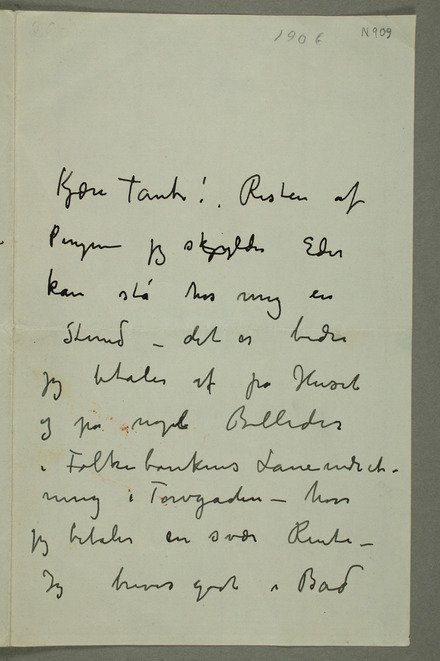 1906 N 909
Kjære Tante! Resten af
Pengene jeg skylder Eder
kan stå hos mig en
Stund – det er bedre
jeg betaler af på Huset
og på nogle Billeder
i Folkebankens Laaneindret-
ning i Torvgaden – hvor
jeg betaler en svær Rente –
Jeg
godt i Bad